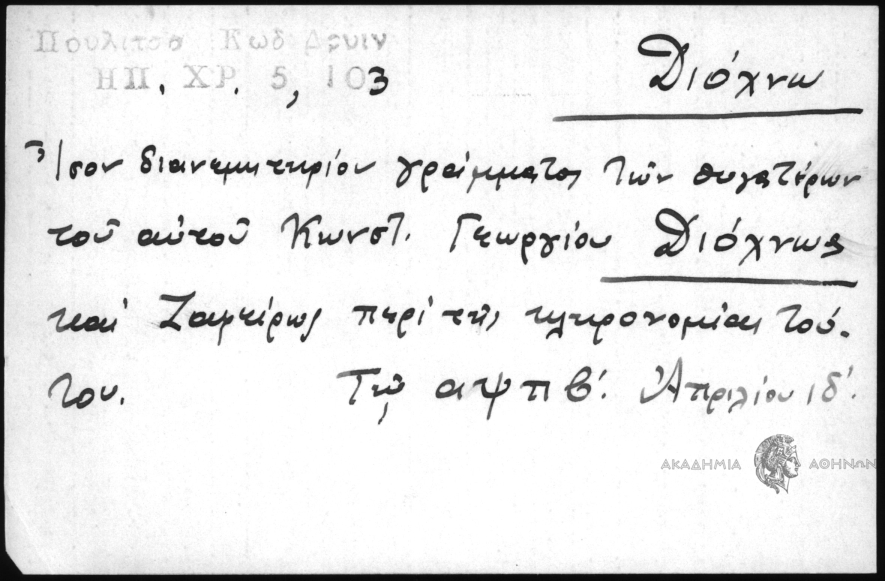 Πουλιτσα Κωδ Δρυιν
ΗΠ. ΧΡ. 5, 103
Διόχνω
Ἴσον διανεμητηρίου γράμματος τῶν θυγατέρων
τοῦ αὐτοῦ Κωνστ. Γεωργίου Διόχνως
καὶ Ζαφείρως περὶ τῆς κληρονομίας τού-
του. Τῷ αψπβ΄. Ἀπριλίου ιδ΄.
ΑΚΑΔΗΜΙΑ ΑΘΗΝΩΝ